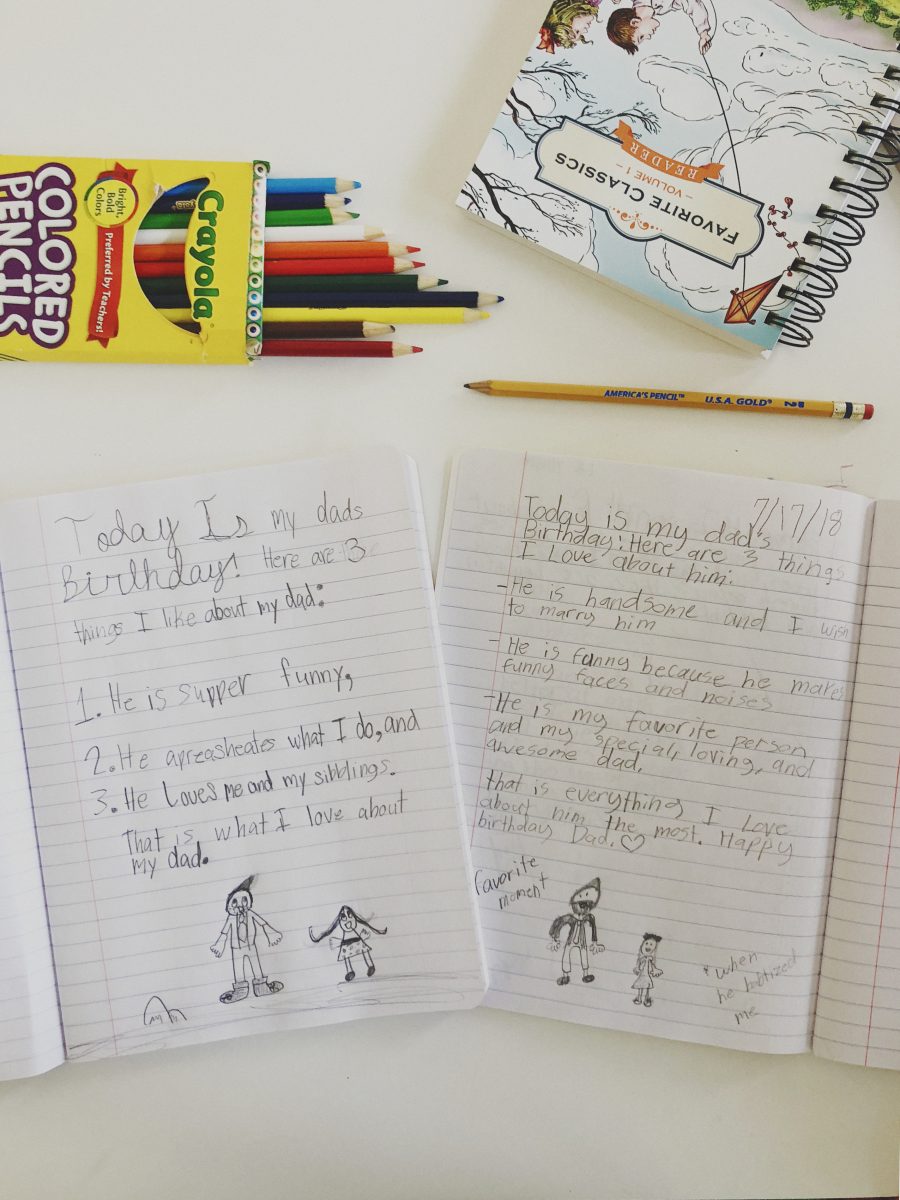 COLORED
PENCILS
Bright,
Bold
Colors
Preferred by Teachers!
Crayola
FAVORITE CLASSICS
– VOLUME 1 –
READER
AMERICA'S PENCIL™ U.S.A. GOLD® 2
Today Is my dads
Birthday! Here are 3
things I like about my dad:
1. He is supper funny,
2. He apreasheates what I do, and
3. He Loves me and my sibblings.
That is what I love about
my dad.
7/17/18
Today is my dad's
Birthday! Here are 3 things
I Love about him:
- He is handsome and I wish
to marry him
- He is funny because he makes
funny faces and noises
- He is my favorite person
and my special, loving, and
awesome dad.
that is everything I Love
about him the most. Happy
birthday Dad. ♡
favorite
moment
* when
he babtized
me